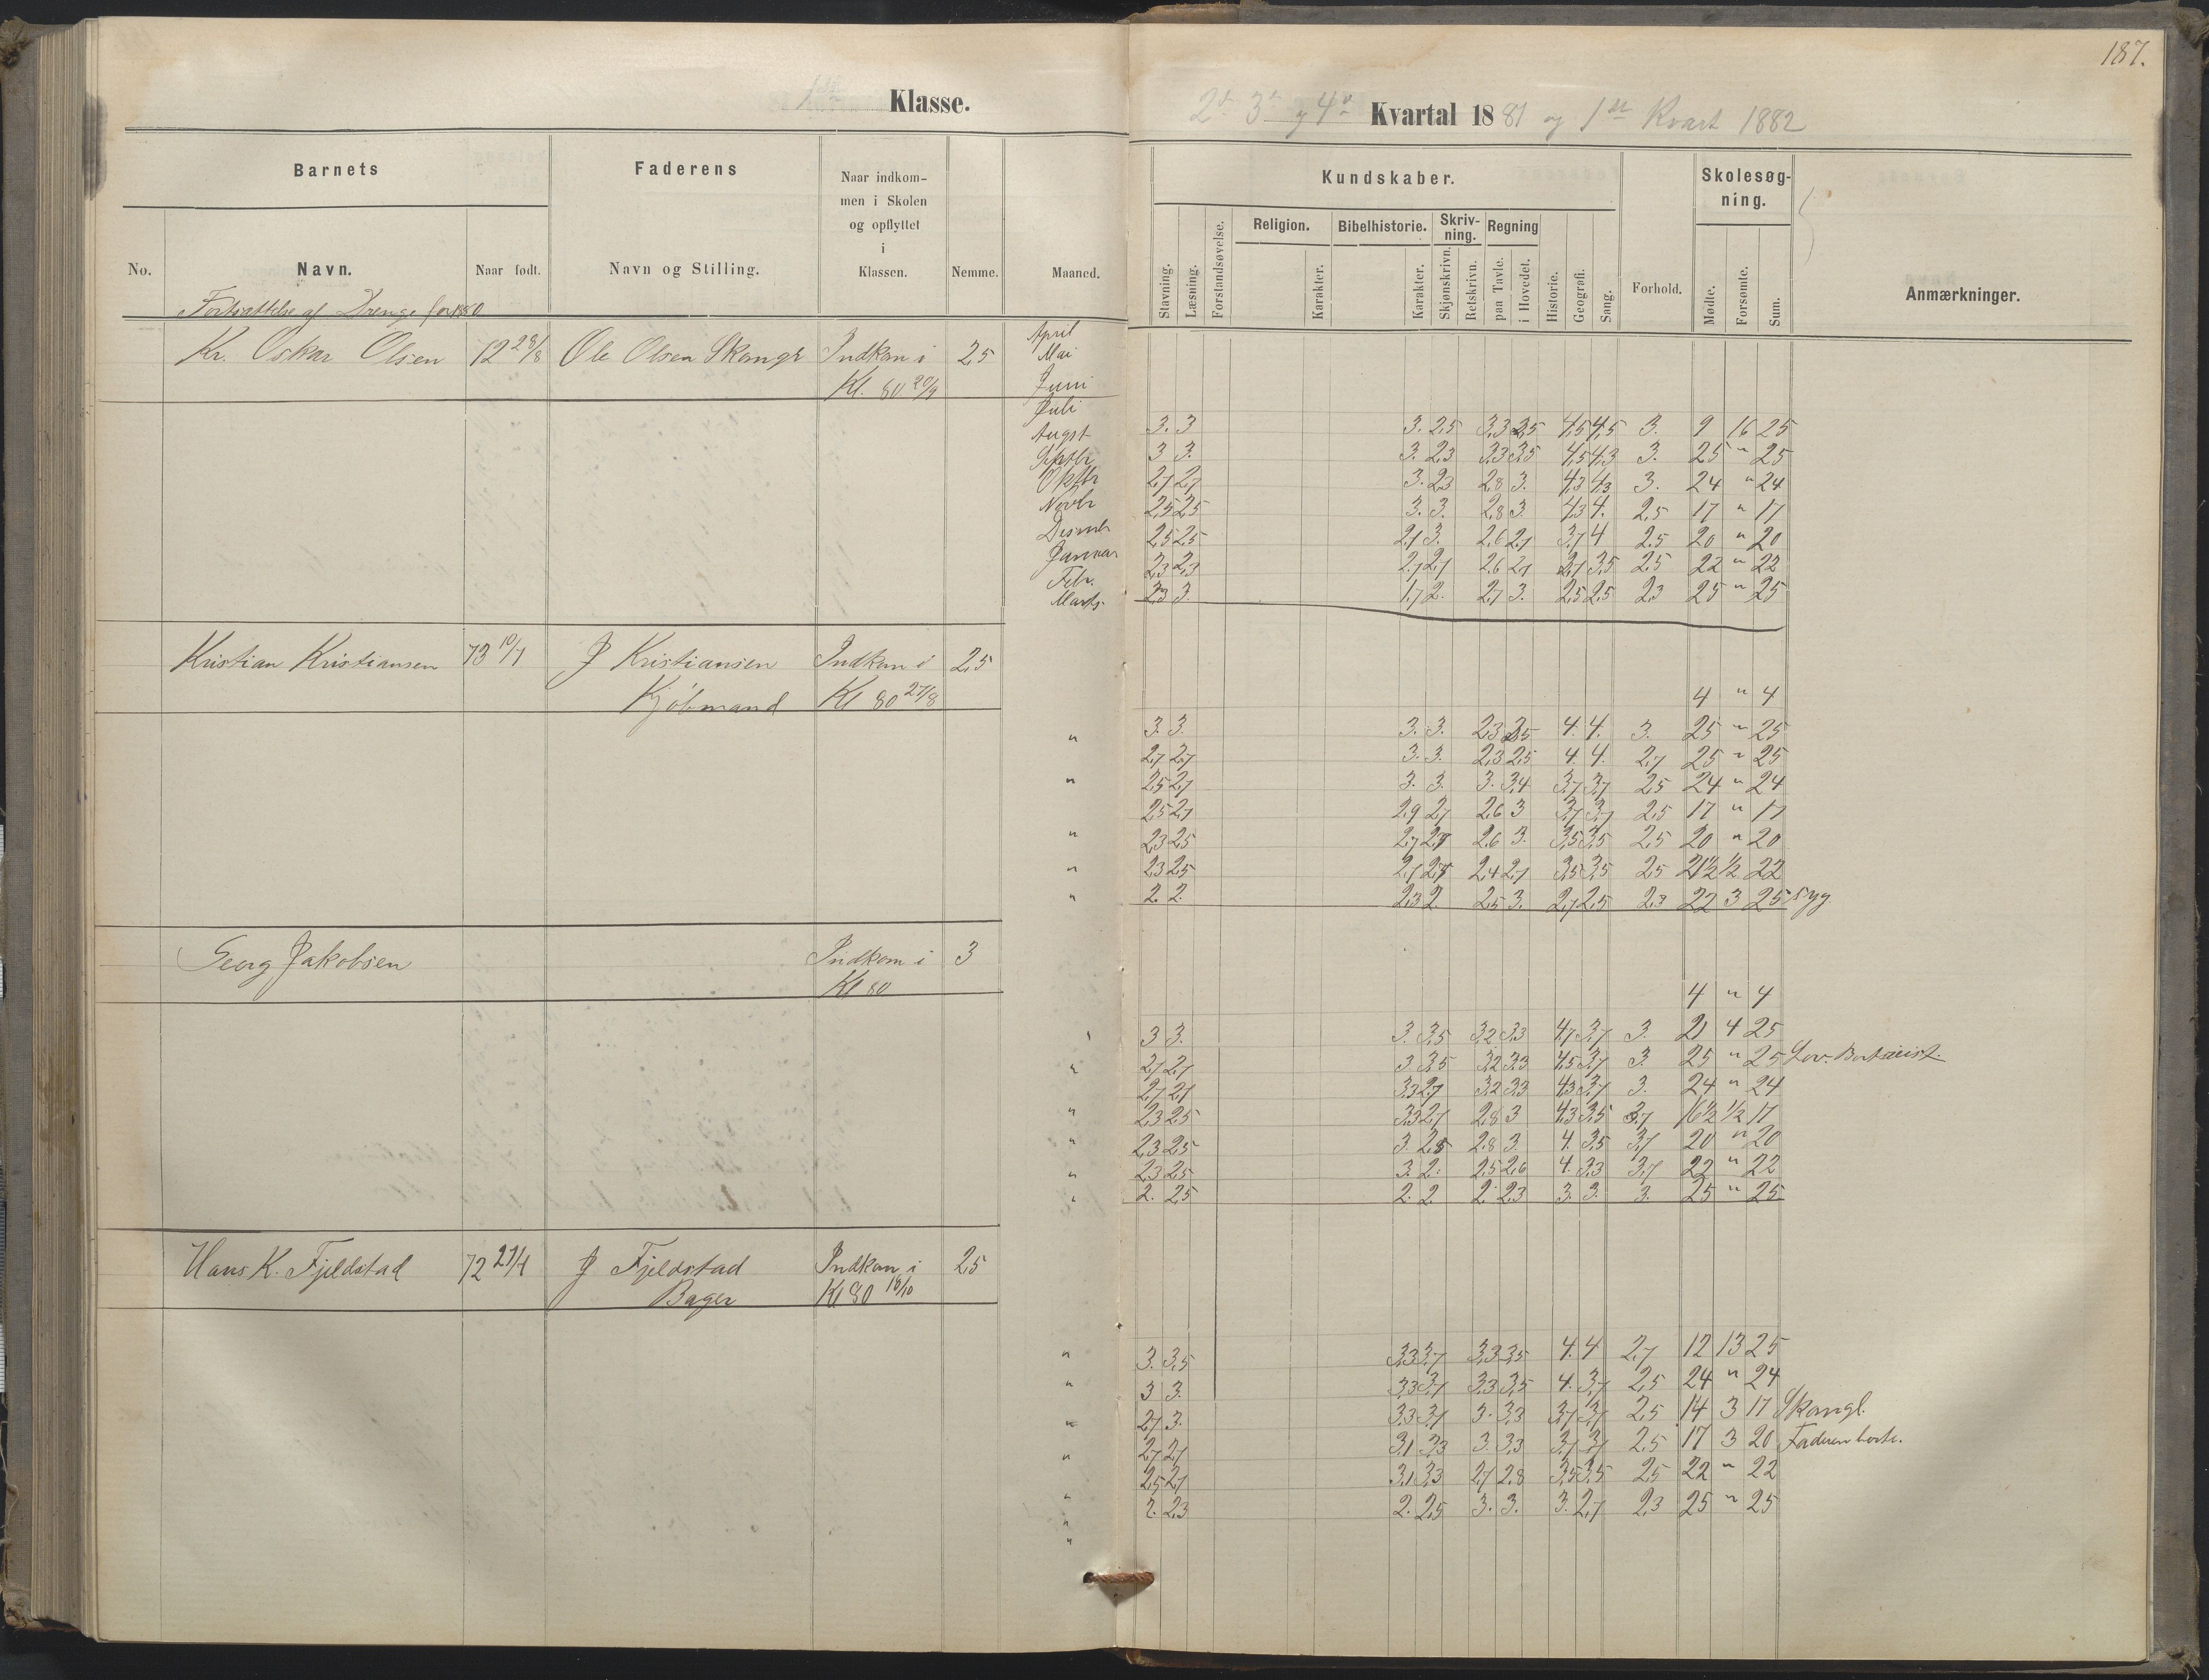 187.
1ste Klasse.
2det 3die og 4de Kvartal 1881 og 1ste Kvart 1882
Barnets
Faderens
Naar indkom-
men i Skolen
og opflyttet
i
Klassen.
No.
Navn.
Naar født.
Navn og Stilling.
Nemme.
Maaned.
Kundskaber.
Skolesøg-
ning.
Stavning.
Læsning.
Forstandsøvelse.
Religion.
Karakter.
Bibelhistorie.
Karakter.
Skriv-
ning.
Skjønskrivn.
Retskrivn.
Regning
paa Tavle.
i Hovedet.
Historie.
Geografi.
Sang.
Forhold.
Mødte.
Forsømte.
Sum.
Anmærkninger.
Fortsættelse af Drenge for 1880
Kr. Oskar Olsen 72 28/8 Ole Olsen Indkom i 2,5
Kl. 80 20/9
April
Mai
Juni
Juli
Augst
Septbr
Oktbr
Novbr
Desmbr
Januar
Febr.
Marts
3. 3 3. 2,5 3,3 3,5 4,5 4,5 3. 9 16 25
3 3. 3. 2,3 3,3 3,5 4,5 4,3 3. 25 " 25
2,7 2,7 3. 2,3 2,8 3. 4,3 4,3 3. 24 " 24
2,5 2,5 3. 3. 2,8 3. 4,3 4. 2,5 17 " 17
2,5 2,5 2,7 3. 2,6 2,7 3,7 4 2,5 20 " 20
2,3 2,3 2,7 2,7 2,6 2,7 2,7 3,5 2,5 22 " 22
2,3 3. 1,7 2. 2,7 3. 2,5 2,5 2,3 25 " 25
Kristian Kristiansen 73 10/1 J Kristiansen Indkom i 2,5
Kjøbmand Kl 80 27/8
4 " 4
3. 3. 3. 3. 2,3 2,5 4. 4. 3. 25 " 25
2,7 2,7 3. 3. 2,3 2,5 4. 4. 2,7 25 " 25
2,5 2,7 3. 3. 3. 3,4 3,7 3,7 2,5 24 " 24
2,5 2,7 2,9 2,7 2,6 3 3,7 3,7 2,5 17 " 17
2,3 2,5 2,7 2,7 2,6 3. 3,5 3,5 2,5 20 " 20
2,3 2,5 2,7 2,7 2,4 2,7 3,5 3,5 2,5 21½ ½ 22
2. 2. 2,3 2. 2,5 3. 2,7 2,5 2,3 22 3 25 syg
Georg Jakobsen Indkom i 3
Kl 80
4 " 4
3 3. 3. 3,5 3,2 3,3 4,7 3,7 3. 21 4 25
2,7 2,7 3. 3,5 3,2 3,3 4,5 3,7 3. 25 " 25
2,7 2,7 3,3 2,7 3,2 3,3 4,3 3,7 3. 24 " 24
2,3 2,5 3,3 2,7 2,8 3 4,3 3,5 3,7 16½ ½ 17
2,3 2,5 3. 2,5 2,8 3. 4. 3,5 3,7 20 " 20
2,3 2,5 3. 2. 2,5 2,6 4. 3,3 3,7 22 " 22
2. 2,5 2. 2 2. 2,3 3. 3. 3. 25 " 25
Hans K. Fjeldstad 72 27/1 J Fjeldstad Indkom i 2,5
Bager Kl 80 18/10
3. 3,5 3,3 3,7 3,3 3,5 4. 4 2,7 12 13 25
3 3. 3,3 3,7 3,3 3,5 4. 3,7 2,5 24 " 24
2,7 3. 3,3 3,7 3. 3,3 3,7 3,7 2,5 14 3 17 Skangl.
2,7 2,7 3,1 3,3 3. 3,3 3,7 3,7 2,5 17 3 20 Faderen borte.
2,5 2,7 3,1 3,3 2,7 2,8 3,5 3,5 2,5 22 " 22
2. 2,3 2. 2,5 3. 3. 3. 2,7 2,3 25 " 25